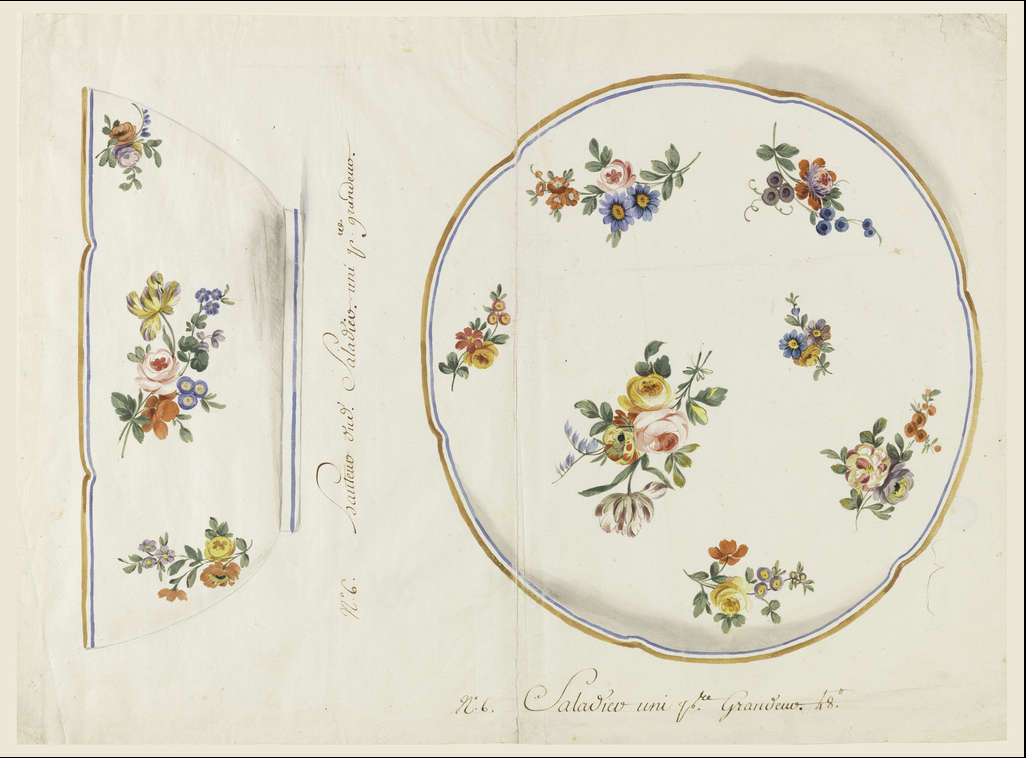 N.° 6. Hauteur du d.t Saladier uni p.re grandeur.
N.° 6. Saladier uni p.re Grandeur. 48.#